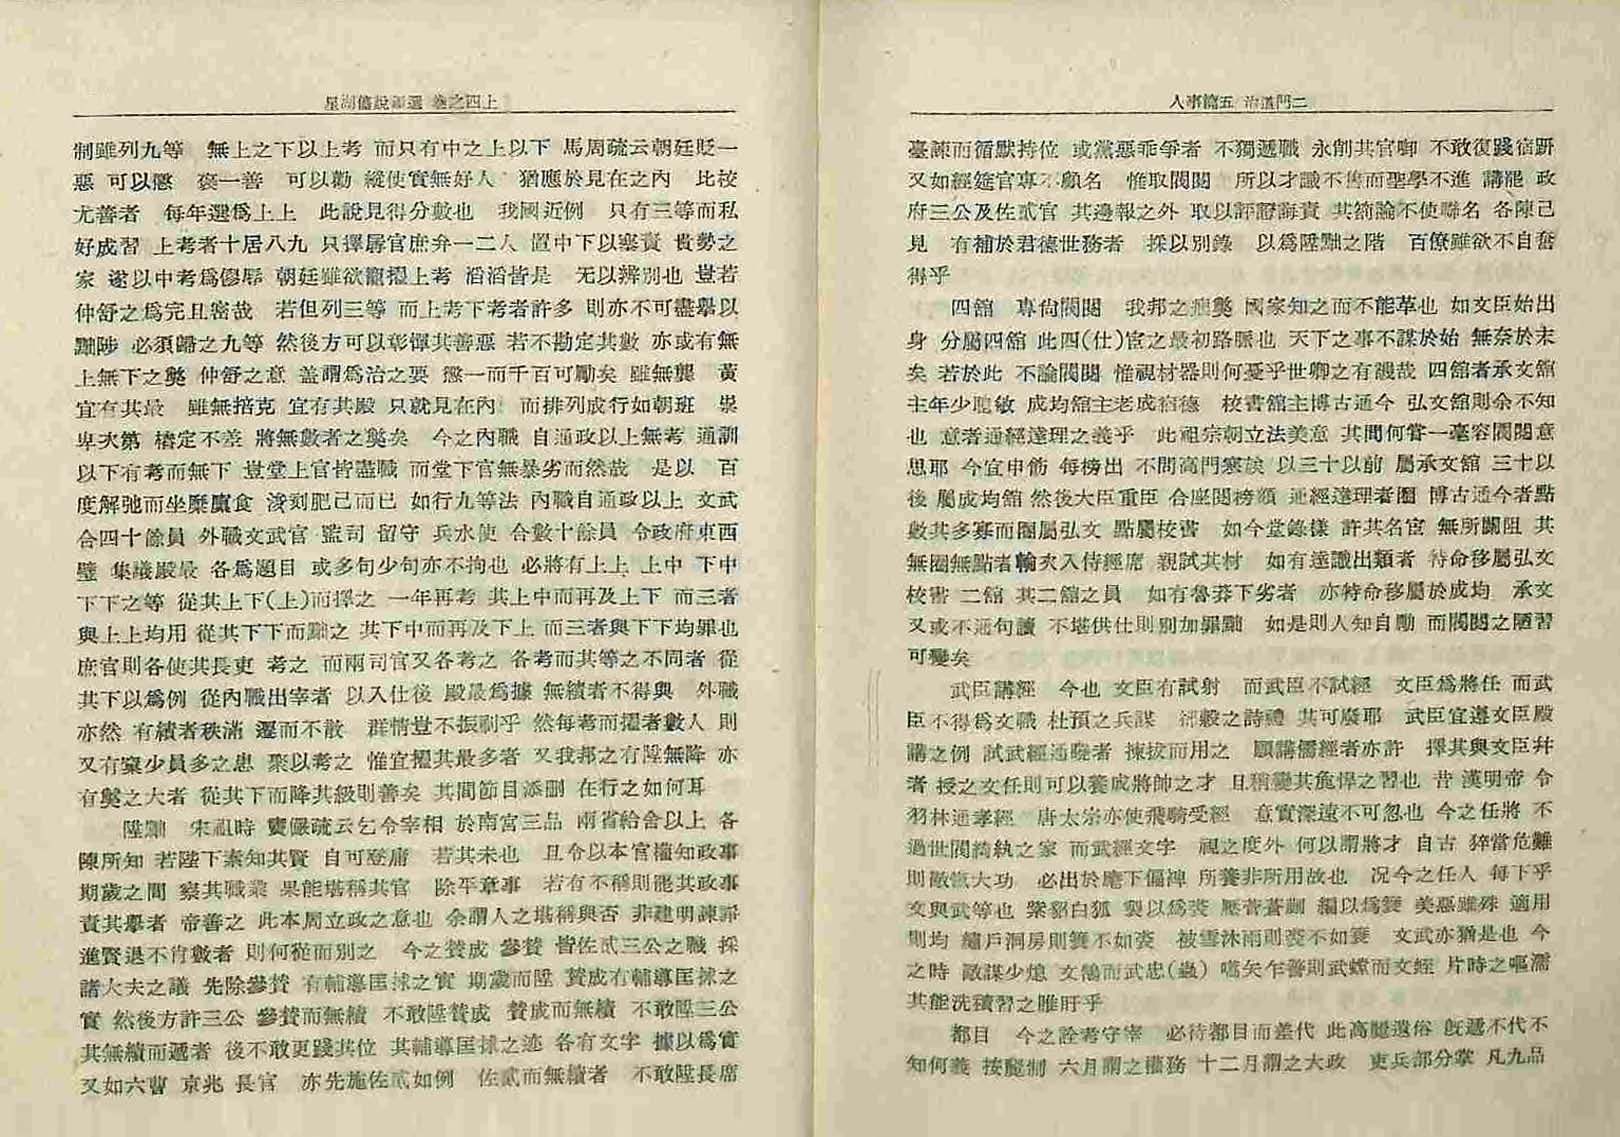 星湖僿說類選 卷之四上
制雖列九等 無上之下以上考 而只有中之上以下 馬周疏云朝廷貶一
惡 可以懲 褒一善 可以勸 縱使實無好人 猶應於見在之內 比校
尤善者 每年選爲上上 此說見得分數也 我國近例 只有三等而私
好成習 上考者十居八九 只擇孱官庶弁一二人 置中下以塞責 貴勢之
家 遂以中考爲僇辱 朝廷雖欲寵擢上考 滔滔皆是 无以辨別也 豈若
仲舒之爲完且密哉 若但列三等 而上考下考者許多 則亦不可盡擧以
黜陟 必須歸之九等 然後方可以彰惲其善惡 若不勘定其數 亦或有無
上無下之獘 仲舒之意 盖謂爲治之要 懲一而千百可勵矣 雖無龔 黃
宜有其最 雖無掊克 宜有其殿 只就見在內 而排列成行如朝班 崇
卑次第 樁定不差 將無數者之獘矣 今之內職 自通政以上無考 通訓
以下有考而無下 豈堂上官皆盡職 而堂下官無暴劣而然哉 是以 百
度解弛而坐糜廩食 浚刻肥己而已 如行九等法 內職自通政以上 文武
合四十餘員 外職文武官 監司 留守 兵水使 合數十餘員 令政府東西
壁 集議殿最 各爲題目 或多句少句亦不拘也 必將有上上 上中 下中
下下之等 從其上下(上)而擇之 一年再考 其上中而再及上下 而三者
與上上均用 從其下下而黜之 其下中而再及下上 而三者與下下均罪也
庶官則各使其長吏 考之 而兩司官又各考之 各考而其等之不同者 從
其下以爲例 從內職出宰者 以入仕後 殿最爲據 無績者不得與 外職
亦然 有績者秩滿 遷而不散 群情豈不振刷乎 然每考而擢者數人 則
又有窠少員多之患 聚以考之 惟宜擢其最多者 又我邦之有陞無降 亦
有獘之大者 從其下而降其級則善矣 其間節目添刪 在行之如何耳
陞黜 宋祖時 竇儼疏云乞令宰相 於南宮三品 兩省給舍以上 各
陳所知 若陛下素知其賢 自可登庸 若其未也 且令以本官權知政事
期歲之間 察其職業 果能堪稱其官 除平章事 若有不稱則罷其政事
責其擧者 帝善之 此本周立政之意也 余謂人之堪稱與否 非建明諫諍
進賢退不肖數者 則何從而別之 今之贊成 參贊 皆佐貳三公之職 採
諸大夫之議 先除參贊 有輔導匡捄之實 期歲而陞 贊成有輔導匡捄之
實 然後方許三公 參贊而無績 不敢陞贊成 贊成而無績 不敢陞三公
其無績而遞者 後不敢更踐其位 其輔導匡捄之迹 各有文字 據以爲實
又如六曹 京兆 長官 亦先施佐貳如例 佐貳而無績者 不敢陞長席
人事篇五 治道門二
臺諫而循默持位 或黨惡乖爭者 不獨遞職 永削其官啣 不敢復踐宿趼
又如經筵官專不顧名 惟取閥閱 所以才識不售而聖學不進 講罷 政
府三公及佐貳官 其邊報之外 取以評證誨責 其箚論不使聯名 各陳己
見 有補於君德世務者 採以別錄 以爲陞黜之階 百僚雖欲不自奮
得乎
四舘 專尙閥閱 我邦之痼獘 國家知之而不能革也 如文臣始出
身 分屬四舘 此四(仕)宦之最初路脈也 天下之事不謀於始 無奈於末
矣 若於此 不論閥閱 惟視材器則何憂乎世卿之有譏哉 四舘者承文舘
主年少聰敏 成均舘主老成宿德 校書舘主博古通今 弘文舘則余不知
也 意者通經達理之義乎 此祖宗朝立法美意 其間何嘗一毫容閥閱意
思耶 今宜申飭 每榜出 不問高門寒族 以三十以前 屬承文舘 三十以
後 屬成均舘 然後大臣重臣 合座閱榜顔 通經達理者圈 博古通今者點
數其多寡而圈屬弘文 點屬校書 如今堂錄樣 許其名宦 無所關阻 其
無圈無點者輪次入侍經席 親試其材 如有遠識出類者 特命移屬弘文
校書 二舘 其二舘之員 如有魯莽下劣者 亦特命移屬於成均 承文
又或不通句讀 不堪供仕則別加罪黜 如是則人知自勵 而閥閱之陋習
可變矣
武臣講經 今也 文臣有試射 而武臣不試經 文臣爲將任 而武
臣不得爲文職 杜預之兵謀 郤縠之詩禮 其可廢耶 武臣宜遵文臣殿
講之例 試武經通曉者 揀拔而用之 願講儒經者亦許 擇其與文臣幷
者 授之文任則可以養成將帥之才 且稍變其麁悍之習也 昔 漢明帝 令
羽林通孝經 唐太宗亦使飛騎受經 意實深遠不可忽也 今之任將 不
過世閥綺紈之家 而武經文字 視之度外 何以謂將才 自古 猝當危難
則敵愾大功 必出於麾下偏裨 所養非所用故也 况今之任人 每下乎
文與武等也 紫貂白狐 製以爲裘 壓菅蒼蒯 編以爲簑 美惡雖殊 適用
則均 繡戶洞房則簑不如裘 被雪沐雨則裘不如簑 文武亦猶是也 今
之時 敵謀少熄 文鵠而武忠(蟲) 嚆矢乍善則武螳而文蛭 片時之嘔濡
其能洗積習之睢盱乎
都目 今之詮考守宰 必待都目而差代 此高麗遺俗 旣遞不代不
知何義 按麗制 六月謂之權務 十二月謂之大政 吏兵部分掌 凡九品